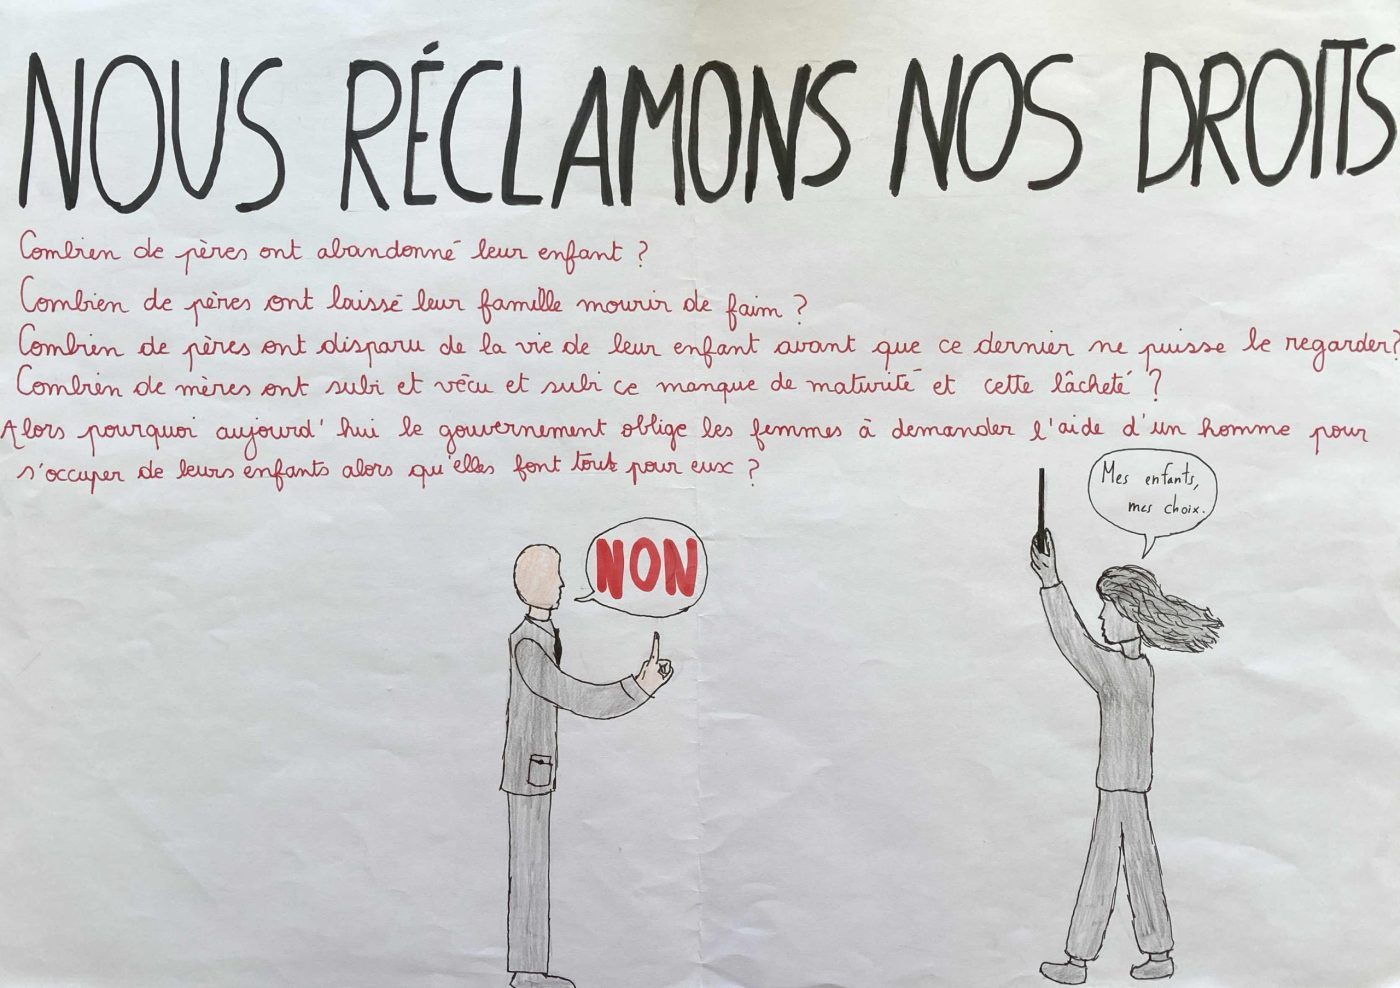 NOUS RÉCLAMONS NOS DROITS
Combien de pères ont abandonné leur enfant ?
Combien de pères ont laissé leur famille mourir de faim ?
Combien de pères ont disparu de la vie de leur enfant avant que ce dernier ne puisse le regarder?
Combien de mères ont subi et vécu et subi ce manque de maturité et cette lâcheté ?
Alors pourquoi aujourd'hui le gouvernement oblige les femmes à demander l'aide d'un homme pour
s'occuper de leurs enfants alors qu'elles font tout pour eux ?
Mes enfants,
mes choix.
NON